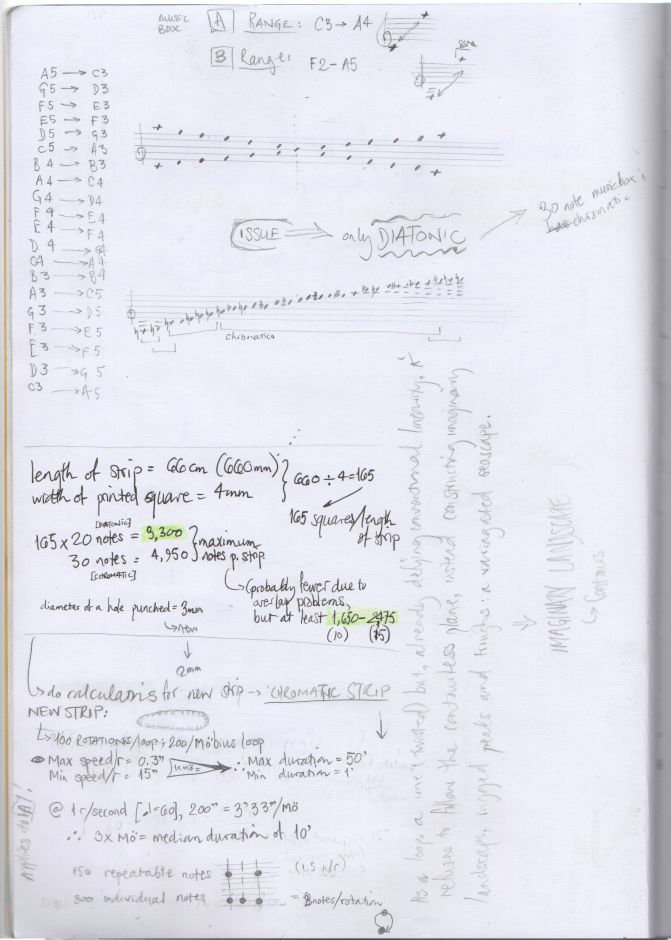 music
BOX
A RANGE: C3 → A4
B Range: F2-A5
8va
A5 → C3
G5 → D3
F5 → E3
E5 → F3
D5 → G3
C5 → A3
B4 → B3
A4 → C4
G4 → D4
F4 → E4
E4 → F4
D4 → G4
C4 → A4
B3 → B4
A3 → C5
G3 → D5
F3 → E5
E3 → F5
D3 → G5
C3 → A5
ISSUE ⟹ only DIATONIC
30 note music box:
chromatic
chromatics
length of strip = 66cm (660mm)
width of printed square = 4mm
660 ÷ 4 = 165
165 squares/length
of strip
[DIATONIC]
165 x 20 notes = 3,300
30 notes = 4,950
[CHROMATIC]
maximum
notes p. strip
(probably fewer due to
overlap problems,
but at least 1,650-2475
(10) (15)
diameter of a hole punched = 3mm
↳ new
↓
2mm
↳ do calculations for new strip → CHROMATIC STRIP
NEW STRIP:
↳ 100 ROTATIONS/loop; 200/Möbius loop
Max speed/r = 0.3"
Min speed/r = 15"
∴ Max duration = 50'
∴ Min duration = 1'
@ 1r/second [♩=60], 200" = 3'33"/Mö
∴ 3x Mö = median duration of 10'
150 repeatable notes (1.5 n/r)
300 individual notes = notes/rotation
Applies to [A]!
As a loop, a line (twisted) but, already defying conventional linearity, it
refuses to follow the contourless plane, instead constructing imaginary
landscape, rugged peaks and troughs: a variegated seascape.
IMAGINARY LANDSCAPE
↳ Contours